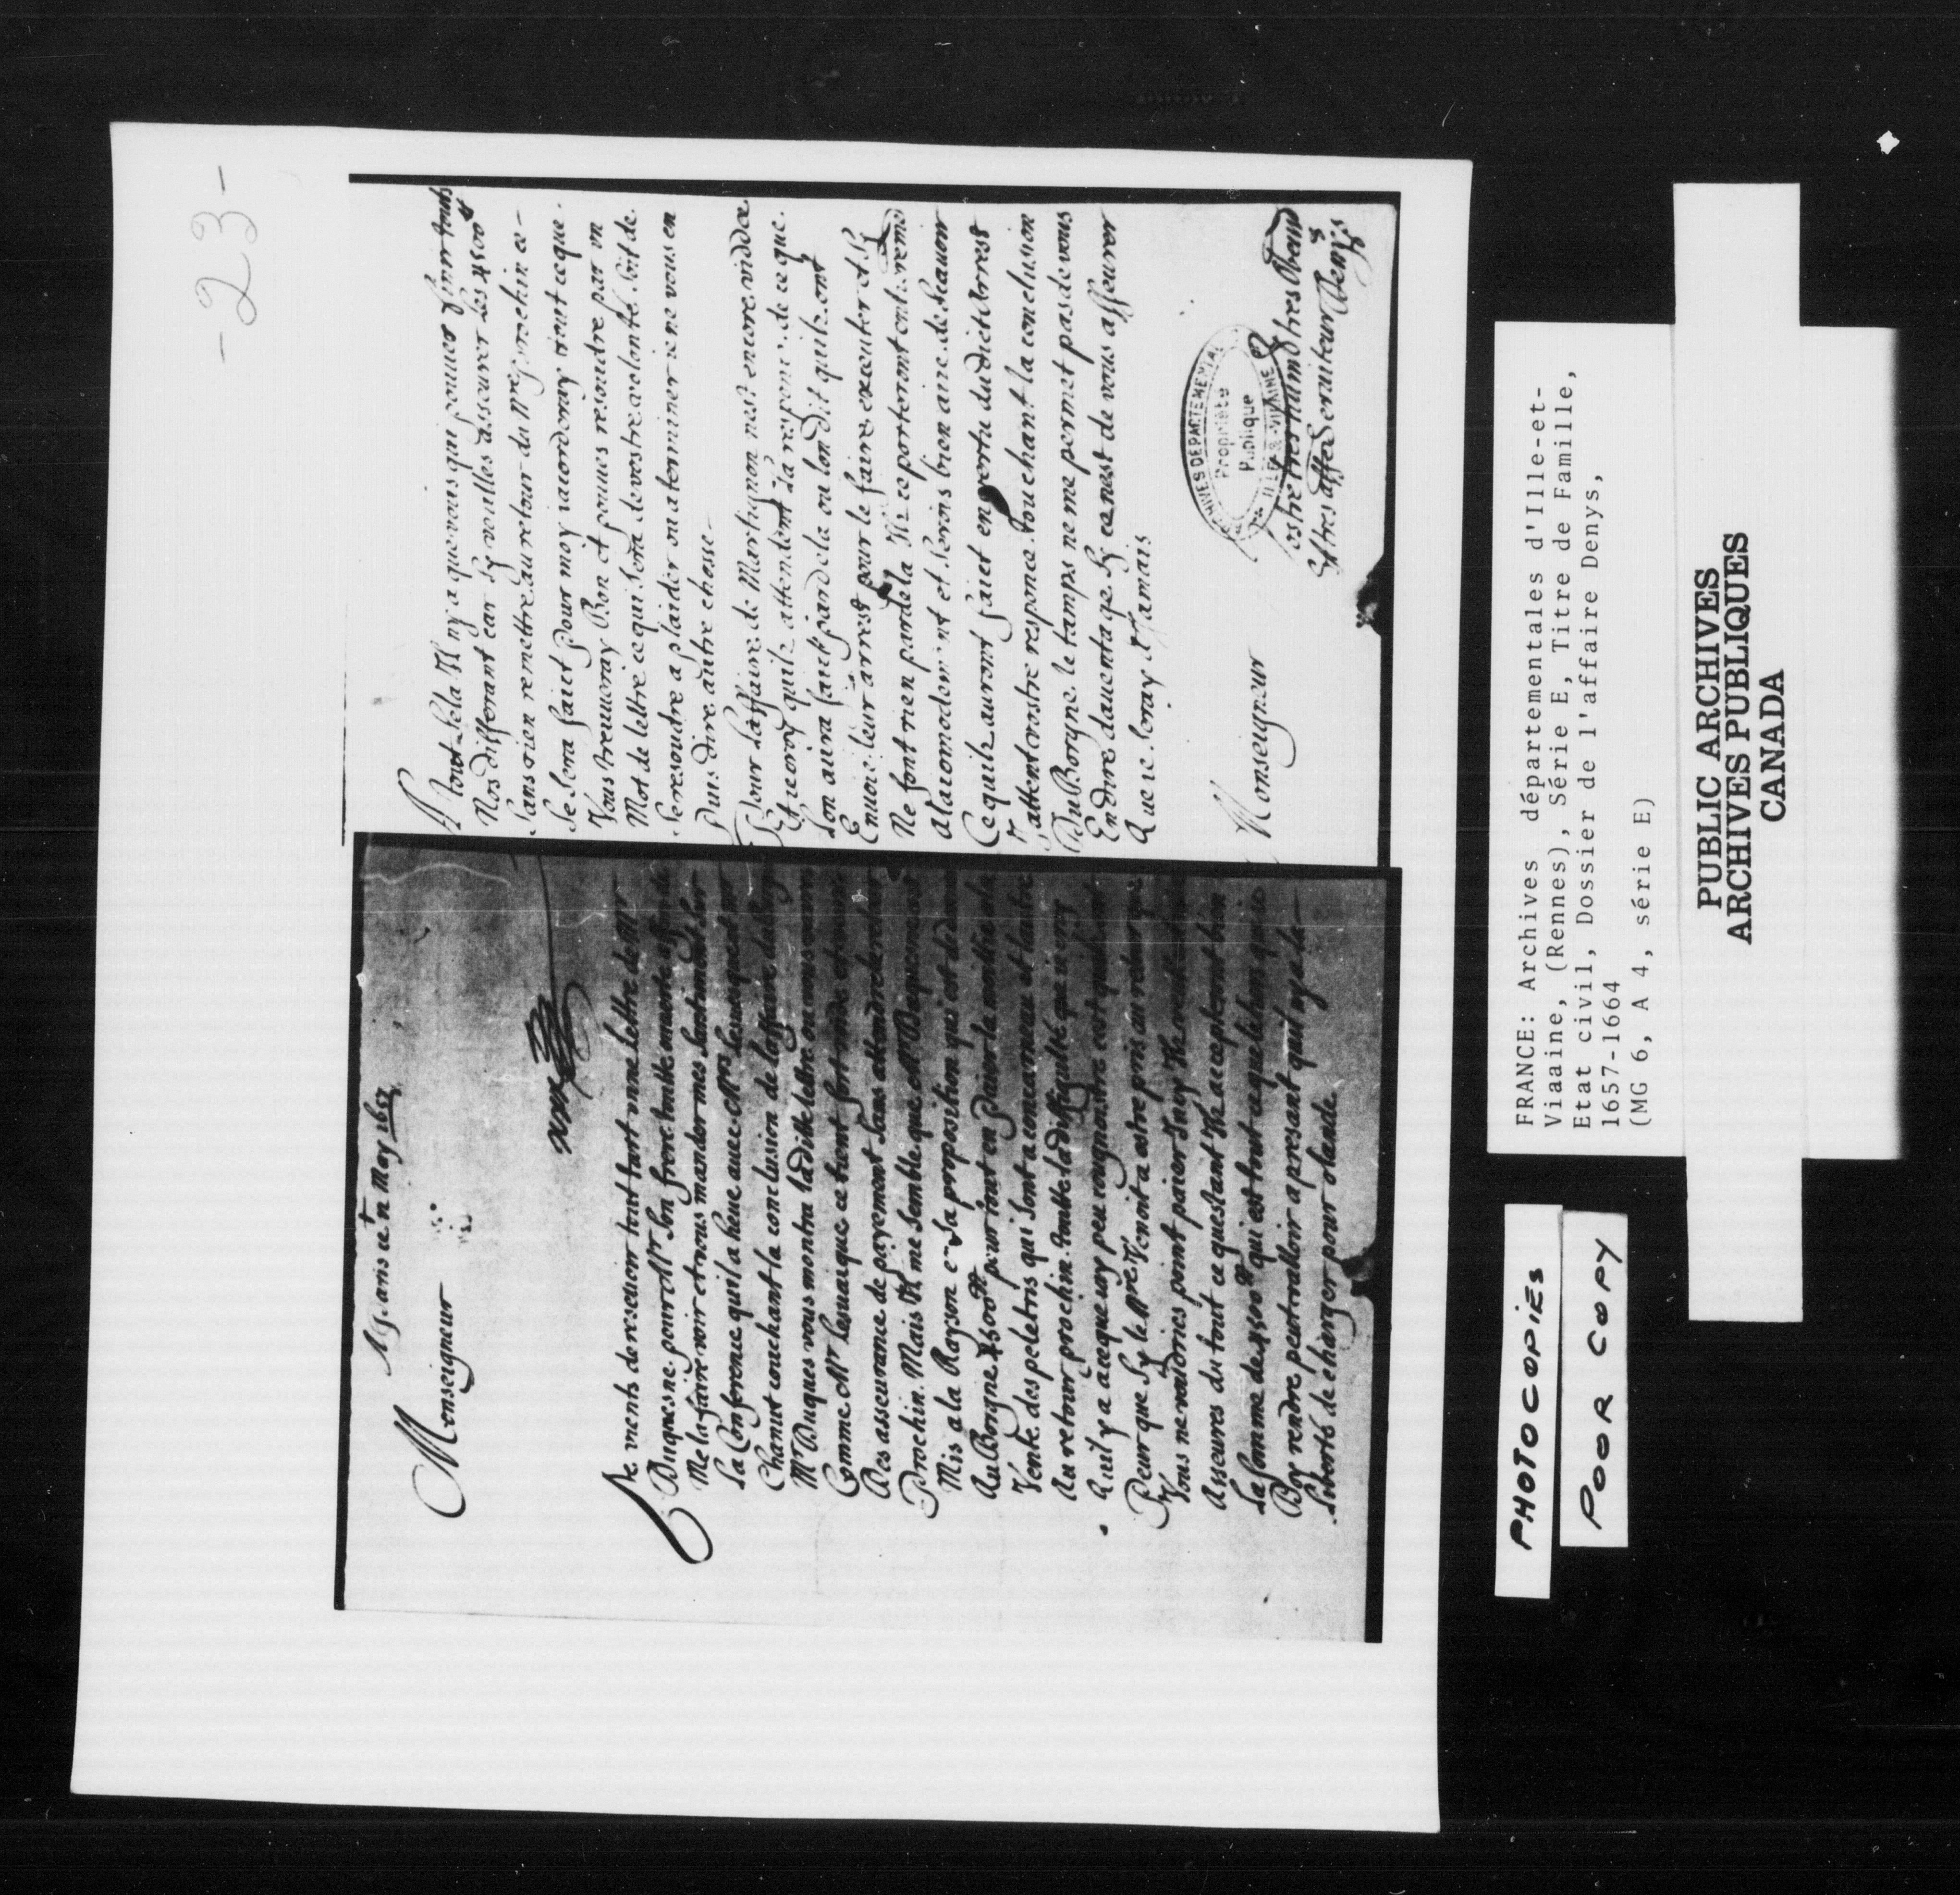 -23-
A Paris ce 12 May 1657
Monseigneur
Je viens de reseuoir tout tart vnne lettre de Mr
Duquesne pour Mr son frere toutte ouuerte affin de
Me la faire voir et vous mander mes santimants sur
La Conferance quil a heue auec Mr leuesque et Mr
Chanut touchant la conclusion de laffaire de
Mr Duques vous montra laditte lettre ou vous
Comme Mr leuaique ce tient fort
Des asseurance de payement sans attandre le retour
Prochin. Mais il me semble que Mr
Mis a la Rayson et sa proposition qui est de
Au Borgne 4500 tt pour tout en paier la moittie de la
Vente des peletris qui sont a venu et lautre
Au retour prochin. toutte la difficulté que ie voy
Quil y a auecque un peu cest quil
Peur que Sy le Nre Venoit a estre pris au retour que
Vous ne voulories point paier
Asseures du tout ce questant Ils accepteront bien
La somme de 4500 tt qui est tout ce que le bien
Bor rendre peut valloir apresant quil nya le
de changer pour olande
A tout Sela Il ny a que vous qui pouues finir touts
Nos differant car sy voulles asseurer les 4500 tt
Sans rien remettre au retour du Nre prochin ce-
Se sera faict pour moy iacorderay tout ce que
Vous treuueray Bon et pouues resoudre par vn
Mot de lettre ce qui sera de vostre volonté soit de
Se resoudre a plaider ou a terminer ie ne vous en
Puis dire autre chosse-
Pour Laffaire de Martignon nest encore viddee
Et ie croy quils attendent la responce de ce que
Lon aura faict par dela ou lon dit quils ont
Enuoie leur arrest pour le faire executer et Sy
Ne font rien par dela Ils ce porteront
A lacomodement et serois bien aize de seauoir
Ce quils auront faict en vertu dudict Arrest
Jattent vostre responce touchant la conclusion
Du Borgne. le tamps ne me permet pas de vous
En dire dauentage Sy ce nest de vous asseurer
Que ie seray A Jamais
Monseigneur
Vostre tres humb tres obeiss
Et tres affec seruiteur Denys
ARCHIVES DEPARTEMENTALES
Propriété
Publique
ILLE-&-VILAINE
FRANCE: Archives départementales d'Ille-et-
Viaaine, (Rennes), Série E, Titre de Famille,
Etat civil, Dossier de l'affaire Denys,
1657-1664
(MG 6, A 4, série E)
PUBLIC ARCHIVES
ARCHIVES PUBLIQUES
CANADA
PHOTOCOPIES
POOR COPY